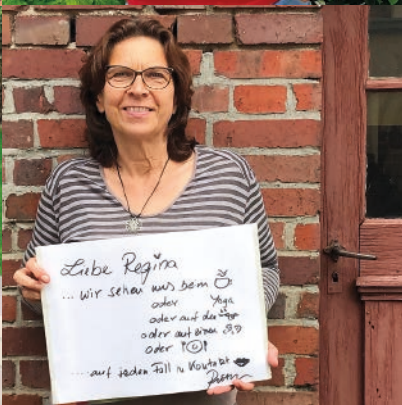 Liebe Regina
... wir sehen uns beim
oder Yoga
oder auf der
oder auf einen
oder
... auf jeden Fall in Kontakt